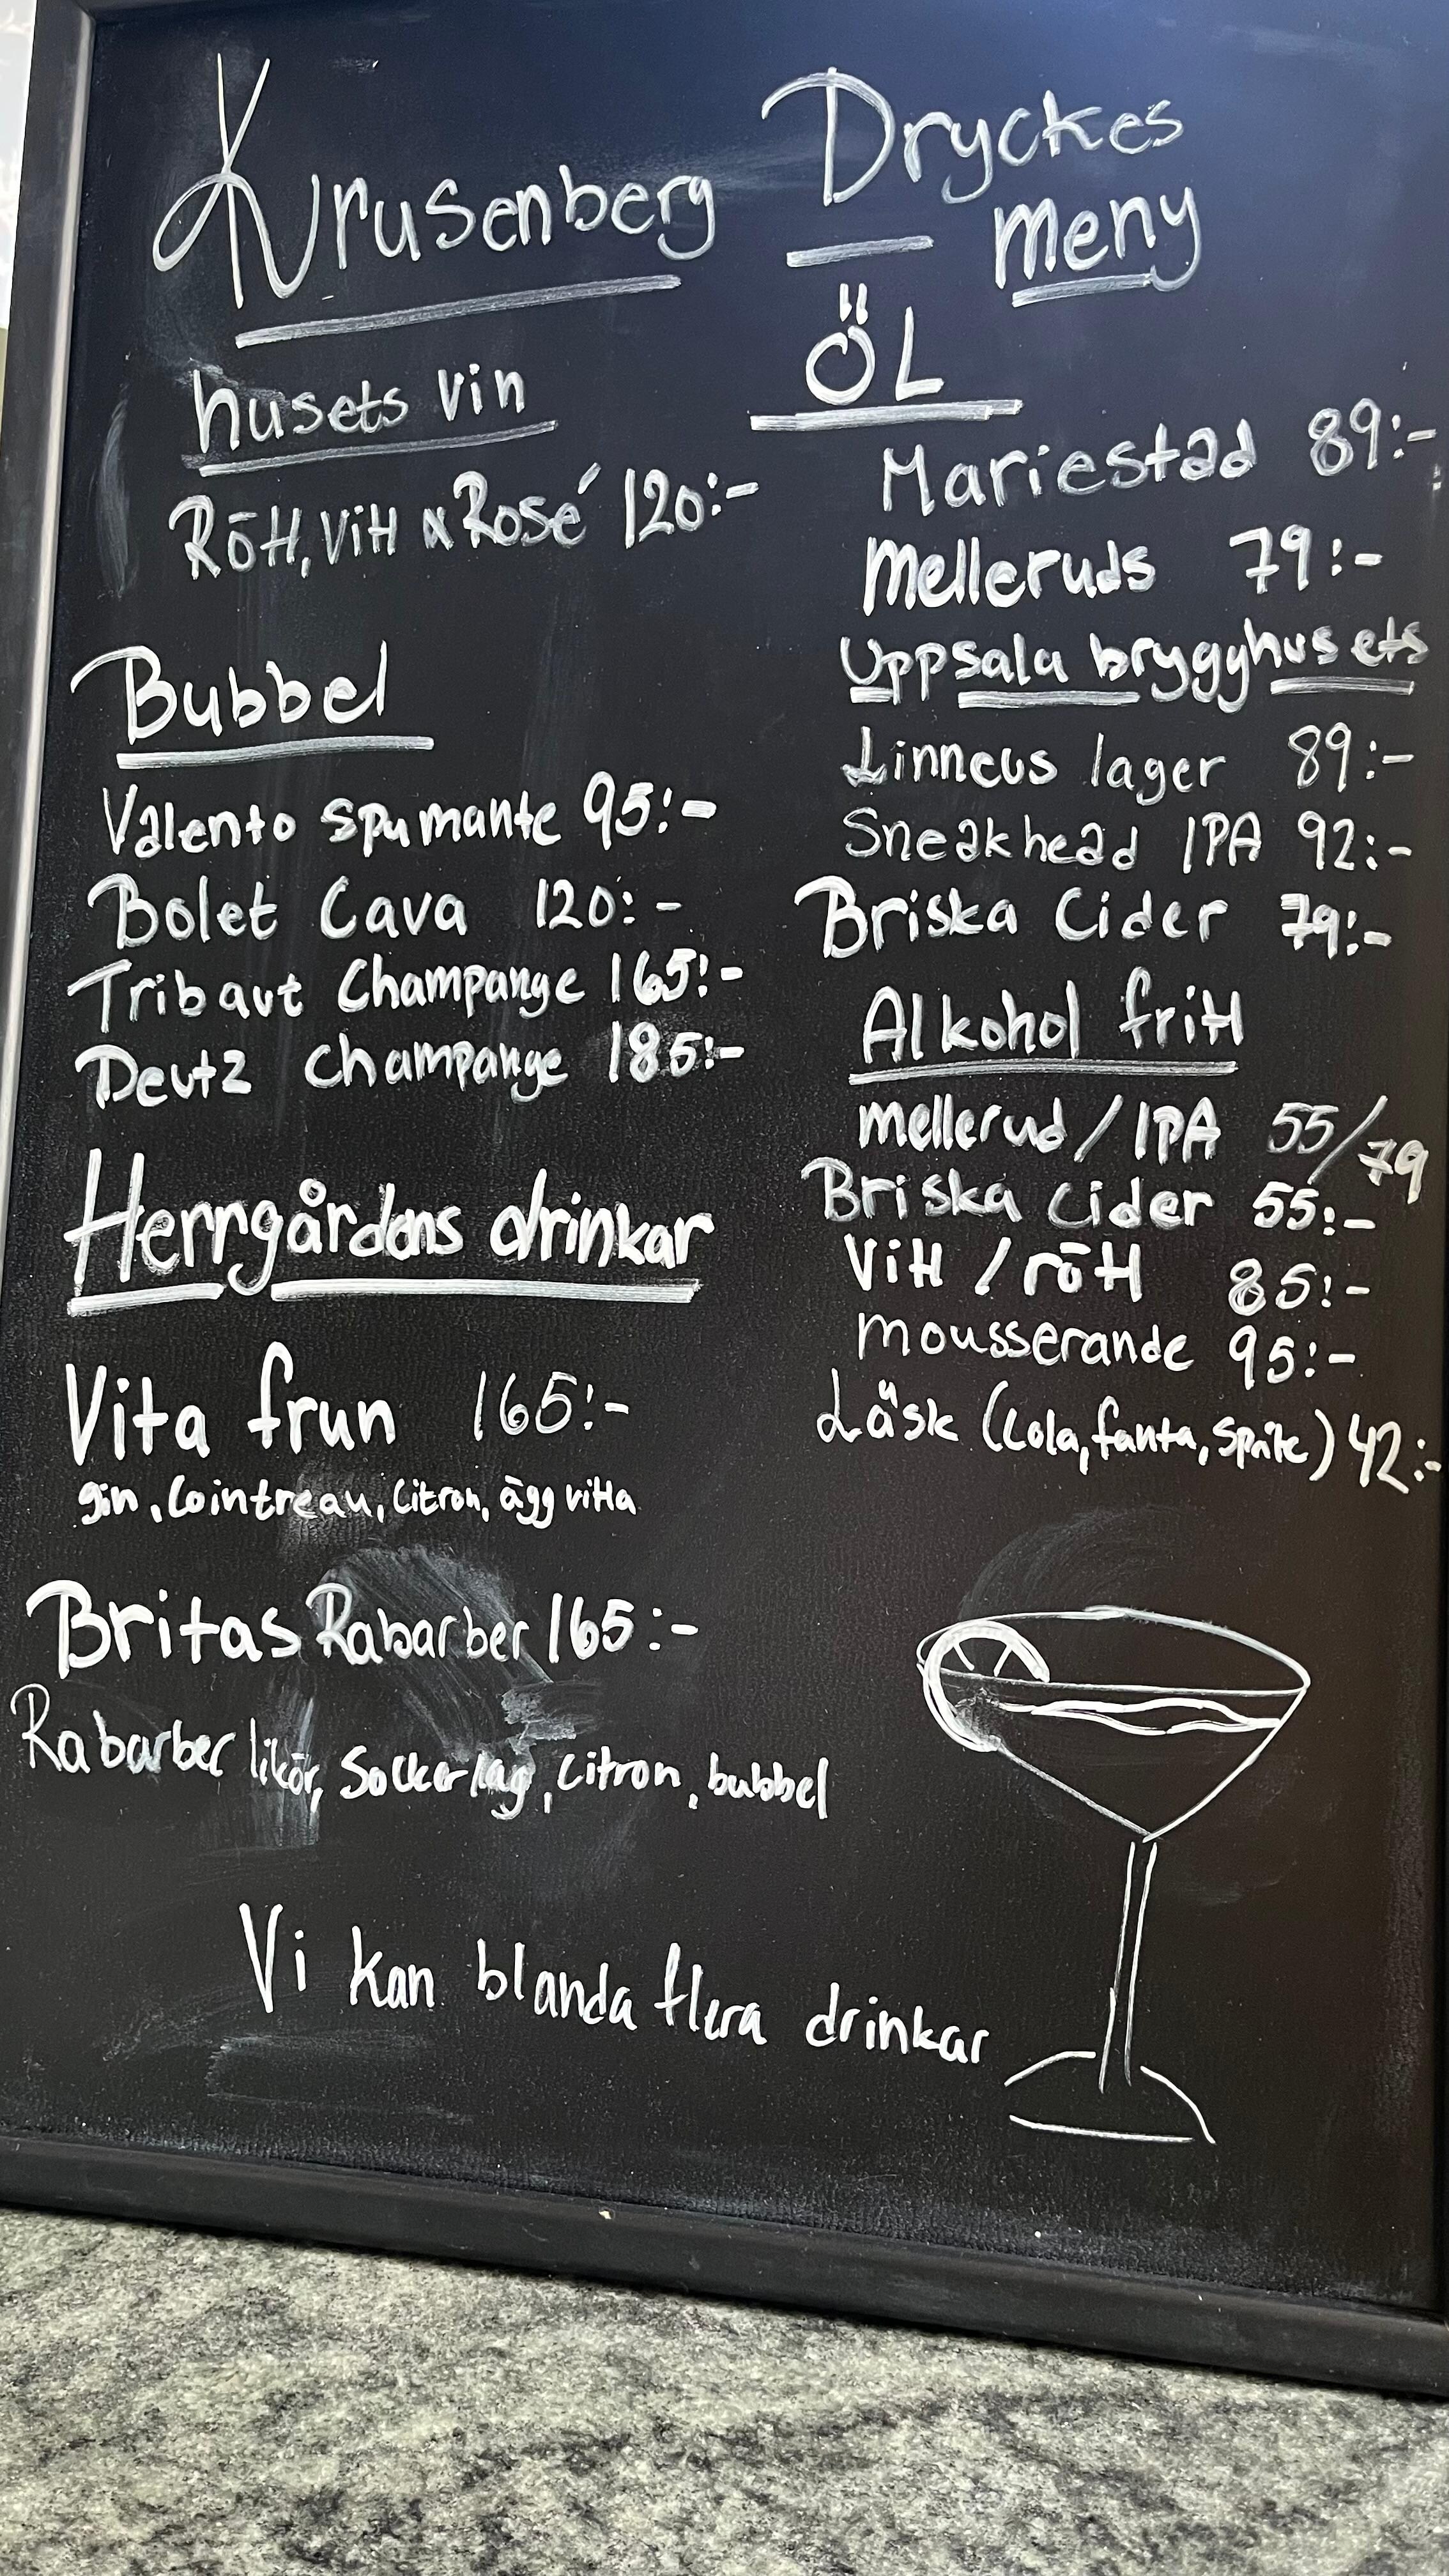 Krusenberg
husets vin
Rött, Vitt & Rosé 120:-
Bubbel
Valento spumante 95:-
Bolet Cava 120:-
Tribaut Champange 165:-
Deutz champange 185:-
Herrgårdens drinkar
Vita frun 165:-
gin, Cointreau, Citron, ägg vitta
Britas Rabarber 165:-
Rabarber likör, Sockerlag, citron, bubbel
Dryckes
meny
ÖL
Mariestad 89:-
Melleruds 79:-
Uppsala brygghusets
Linneus lager 89:-
Sneakhead IPA 92:-
Briska Cider 79:-
Alkohol fritt
mellerud / IPA 55/79
Briska cider 55:-
Vitt / rött 85:-
mousserande 95:-
Läsk (Cola, fanta, sprite) 42:-
Vi kan blanda flera drinkar